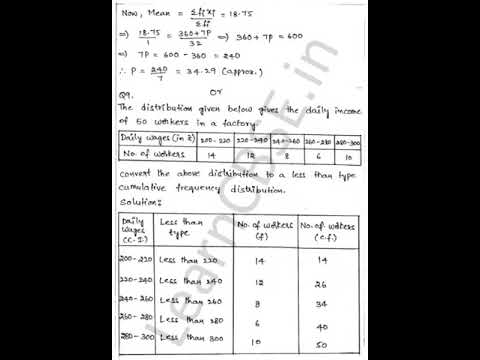 Now, Mean = Σfixi/Σfi = 18.75
⇒ 18.75/1 = 360+7P/32 ⇒ 360+7P = 600
⇒ 7P = 600 - 360 = 240
∴ P = 240/7 = 34.29 (approx.)
Or
Q9.
The distribution given below gives the daily income
of 50 workers in a factory.
Daily wages (in ₹) 200-220 220-240 240-260 260-280 280-300
No. of workers 14 12 8 6 10
convert the above distribution to a less than type
cumulative frequency distribution.
Solution:
Daily wages (C.I.) Less than type No. of workers (f) No. of workers (c.f.)
200-220 Less than 220 14 14
220-240 Less than 240 12 26
240-260 Less than 260 8 34
260-280 Less than 280 6 40
280-300 Less than 300 10 50
LearnCBSE.in